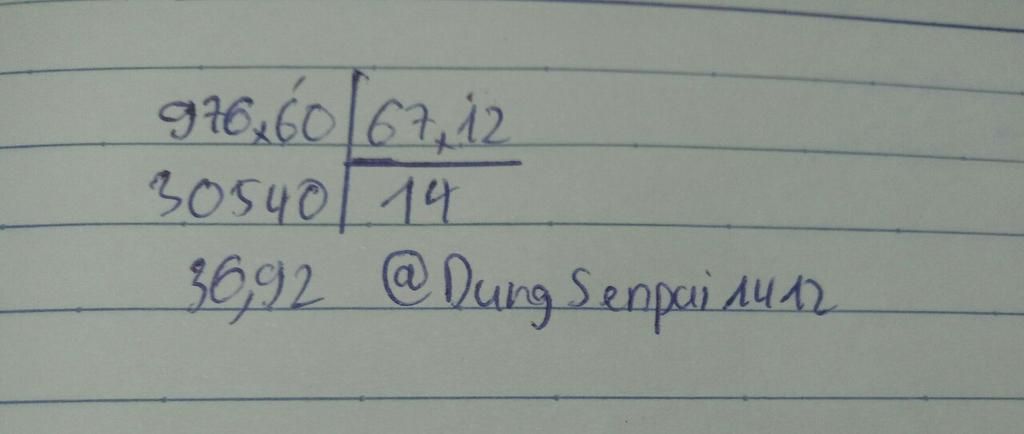 976,60 67,12
30540 14
36,92 @DungSenpai1412